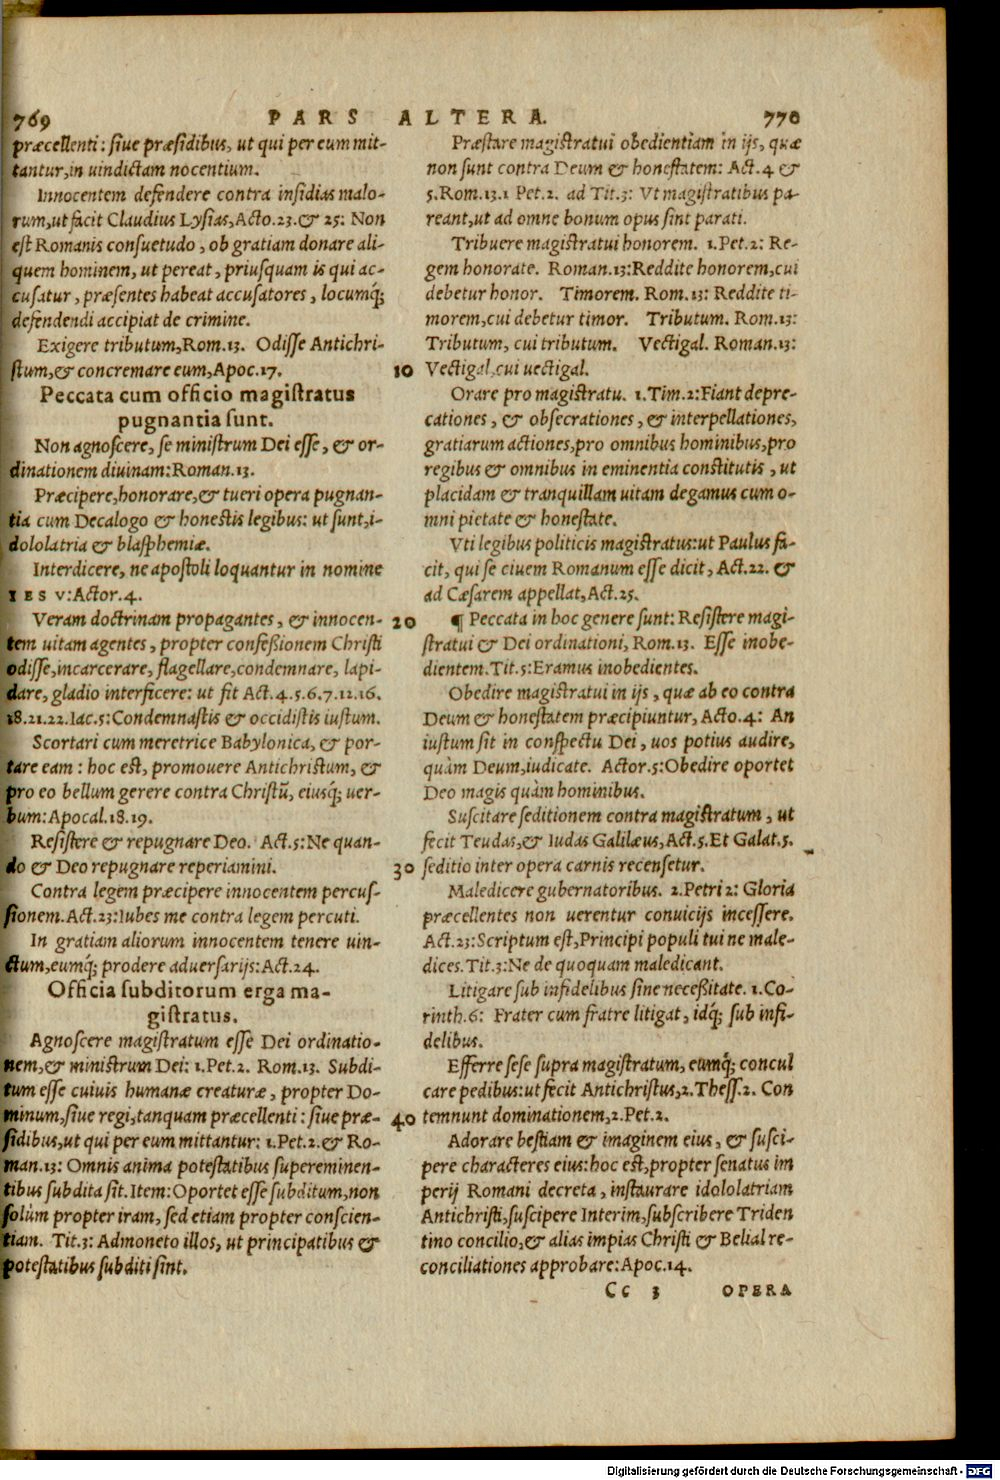 769 PARS ALTERA. 770
præcellenti: siue præsidibus, ut qui per eum mit-
tantur, in uindictam nocentium.
Innocentem defendere contra insidias malo-
rum, ut facit Claudius Lysias, Acto.23.& 25: Non
est Romanis consuetudo, ob gratiam donare ali-
quem hominem, ut pereat, priusquam is qui ac-
cusatur, præsentes habeat accusatores, locumq́;
defendendi accipiat de crimine.
Exigere tributum, Rom.13. Odisse Antichri-
stum, & concremare eum, Apoc.17.
Peccata cum officio magistratus
pugnantia sunt.
Non agnoscere, se ministrum Dei esse, & or-
dinationem diuinam: Roman.13.
Præcipere, honorare, & tueri opera pugnan-
tia cum Decalogo & honestis legibus: ut sunt, i-
dololatria & blasphemiæ.
Interdicere, ne apostoli loquantur in nomine
IESV: Actor.4.
Veram doctrinam propagantes, & innocen-
tem uitam agentes, propter confeßionem Christi
odisse, incarcerare, flagellare, condemnare, lapi-
dare, gladio interficere: ut fit Act.4.5.6.7.12.16.
18.21.22. Iac.5: Condemnastis & occidistis iustum.
Scortari cum meretrice Babylonica, & por-
tare eam: hoc est, promouere Antichristum, &
pro eo bellum gerere contra Christū, eiusq́; uer-
bum: Apocal.18.19.
Resistere & repugnare Deo. Act.5: Ne quan-
do & Deo repugnare reperiamini.
Contra legem præcipere innocentem percus-
sionem. Act.23: Iubes me contra legem percuti.
In gratiam aliorum innocentem tenere uin-
ctum, eumq́; prodere aduersarijs: Act.24.
Officia subditorum erga ma-
gistratus.
Agnoscere magistratum esse Dei ordinatio-
nem, & ministrum Dei: 1.Pet.2. Rom.13. Subdi-
tum esse cuiuis humanæ creaturæ, propter Do-
minum, siue regi, tanquam præcellenti: siue præ-
sidibus, ut qui per eum mittantur: 1.Pet.2. & Ro-
man.13: Omnis anima potestatibus supereminen-
tibus subdita sit. Item: Oportet esse subditum, non
solùm propter iram, sed etiam propter conscien-
tiam. Tit.3: Admoneto illos, ut principatibus &
potestatibus subditi sint.
Præstare magistratui obedientiam in ijs, quæ
non sunt contra Deum & honestatem: Act.4 &
5. Rom.13. 1 Pet.2. ad Tit.3: Vt magistratibus pa-
reant, ut ad omne bonum opus sint parati.
Tribuere magistratui honorem. 1.Pet.2: Re-
gem honorate. Roman.13: Reddite honorem, cui
debetur honor. Timorem. Rom.13: Reddite ti-
morem, cui debetur timor. Tributum. Rom.13:
Tributum, cui tributum. Vectigal. Roman.13:
10 Vectigal, cui uectigal.
Orare pro magistratu. 1.Tim.2: Fiant depre-
cationes, & obsecrationes, & interpellationes,
gratiarum actiones, pro omnibus hominibus, pro
regibus & omnibus in eminentia constitutis, ut
placidam & tranquillam uitam degamus cum o-
mni pietate & honestate.
Vti legibus politicis magistratus: ut Paulus fa-
cit, qui se ciuem Romanum esse dicit, Act.22. &
ad Cæsarem appellat, Act.25.
20 ¶ Peccata in hoc genere sunt: Resistere magi-
stratui & Dei ordinationi, Rom.13. Esse inobe-
dientem. Tit.5: Eramus inobedientes.
Obedire magistratui in ijs, quæ ab eo contra
Deum & honestatem præcipiuntur, Acto.4: An
iustum sit in conspectu Dei, uos potius audire,
quàm Deum, iudicate. Actor.5: Obedire oportet
Deo magis quàm hominibus.
Suscitare seditionem contra magistratum, ut
fecit Teudas, & Iudas Galilæus, Act.5. Et Galat.5.
30 seditio inter opera carnis recensetur.
Maledicere gubernatoribus. 2.Petri 2: Gloria
præcellentes non uerentur conuicijs incessere.
Act.23: Scriptum est, Principi populi tui ne male-
dices. Tit.3: Ne de quoquam maledicant.
Litigare sub infidelibus sine neceßitate. 1.Co-
rinth.6: Frater cum fratre litigat, idq́; sub infi-
delibus.
Efferre sese supra magistratum, eumq́; concul
care pedibus: ut fecit Antichristus, 2.Thess.2. Con
40 temnunt dominationem, 2.Pet.2.
Adorare bestiam & imaginem eius, & susci-
pere characteres eius: hoc est, propter senatus im
perij Romani decreta, instaurare idololatriam
Antichristi, suscipere Interim, subscribere Triden
tino concilio, & alias impias Christi & Belial re-
conciliationes approbare: Apoc.14.
Cc 3 OPERA
Digitalisierung gefördert durch die Deutsche Forschungsgemeinschaft - DFG